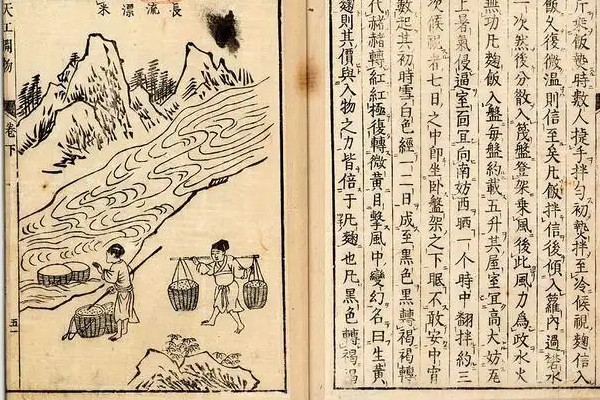 斤蒸飯熟時數人捷手拌勻初熱拌至冷候視麹信入
飯久復微溫則信至矣凡飯拌信後傾入蘿內過礬水
一次然後分散入篾盤登架乘風後此風力爲政水火
無功凡麹飯入盤每盤約載五升其屋室宜高大妨瓦
上暑氣侵逼室面宜向南妨西晒一个時中翻拌約三
次候視者七日之中卽坐卧盤架之下眠不敢安中宵
數起其初時雪白色經一二日成至黑色黑轉褐褐轉
代赭赭轉紅紅極復轉微黃目擊風中變幻名曰生黃
麹則其價與入物之力皆倍于凡麹也凡黑色轉褐褐
長流漂米
天工開物
卷下
五一